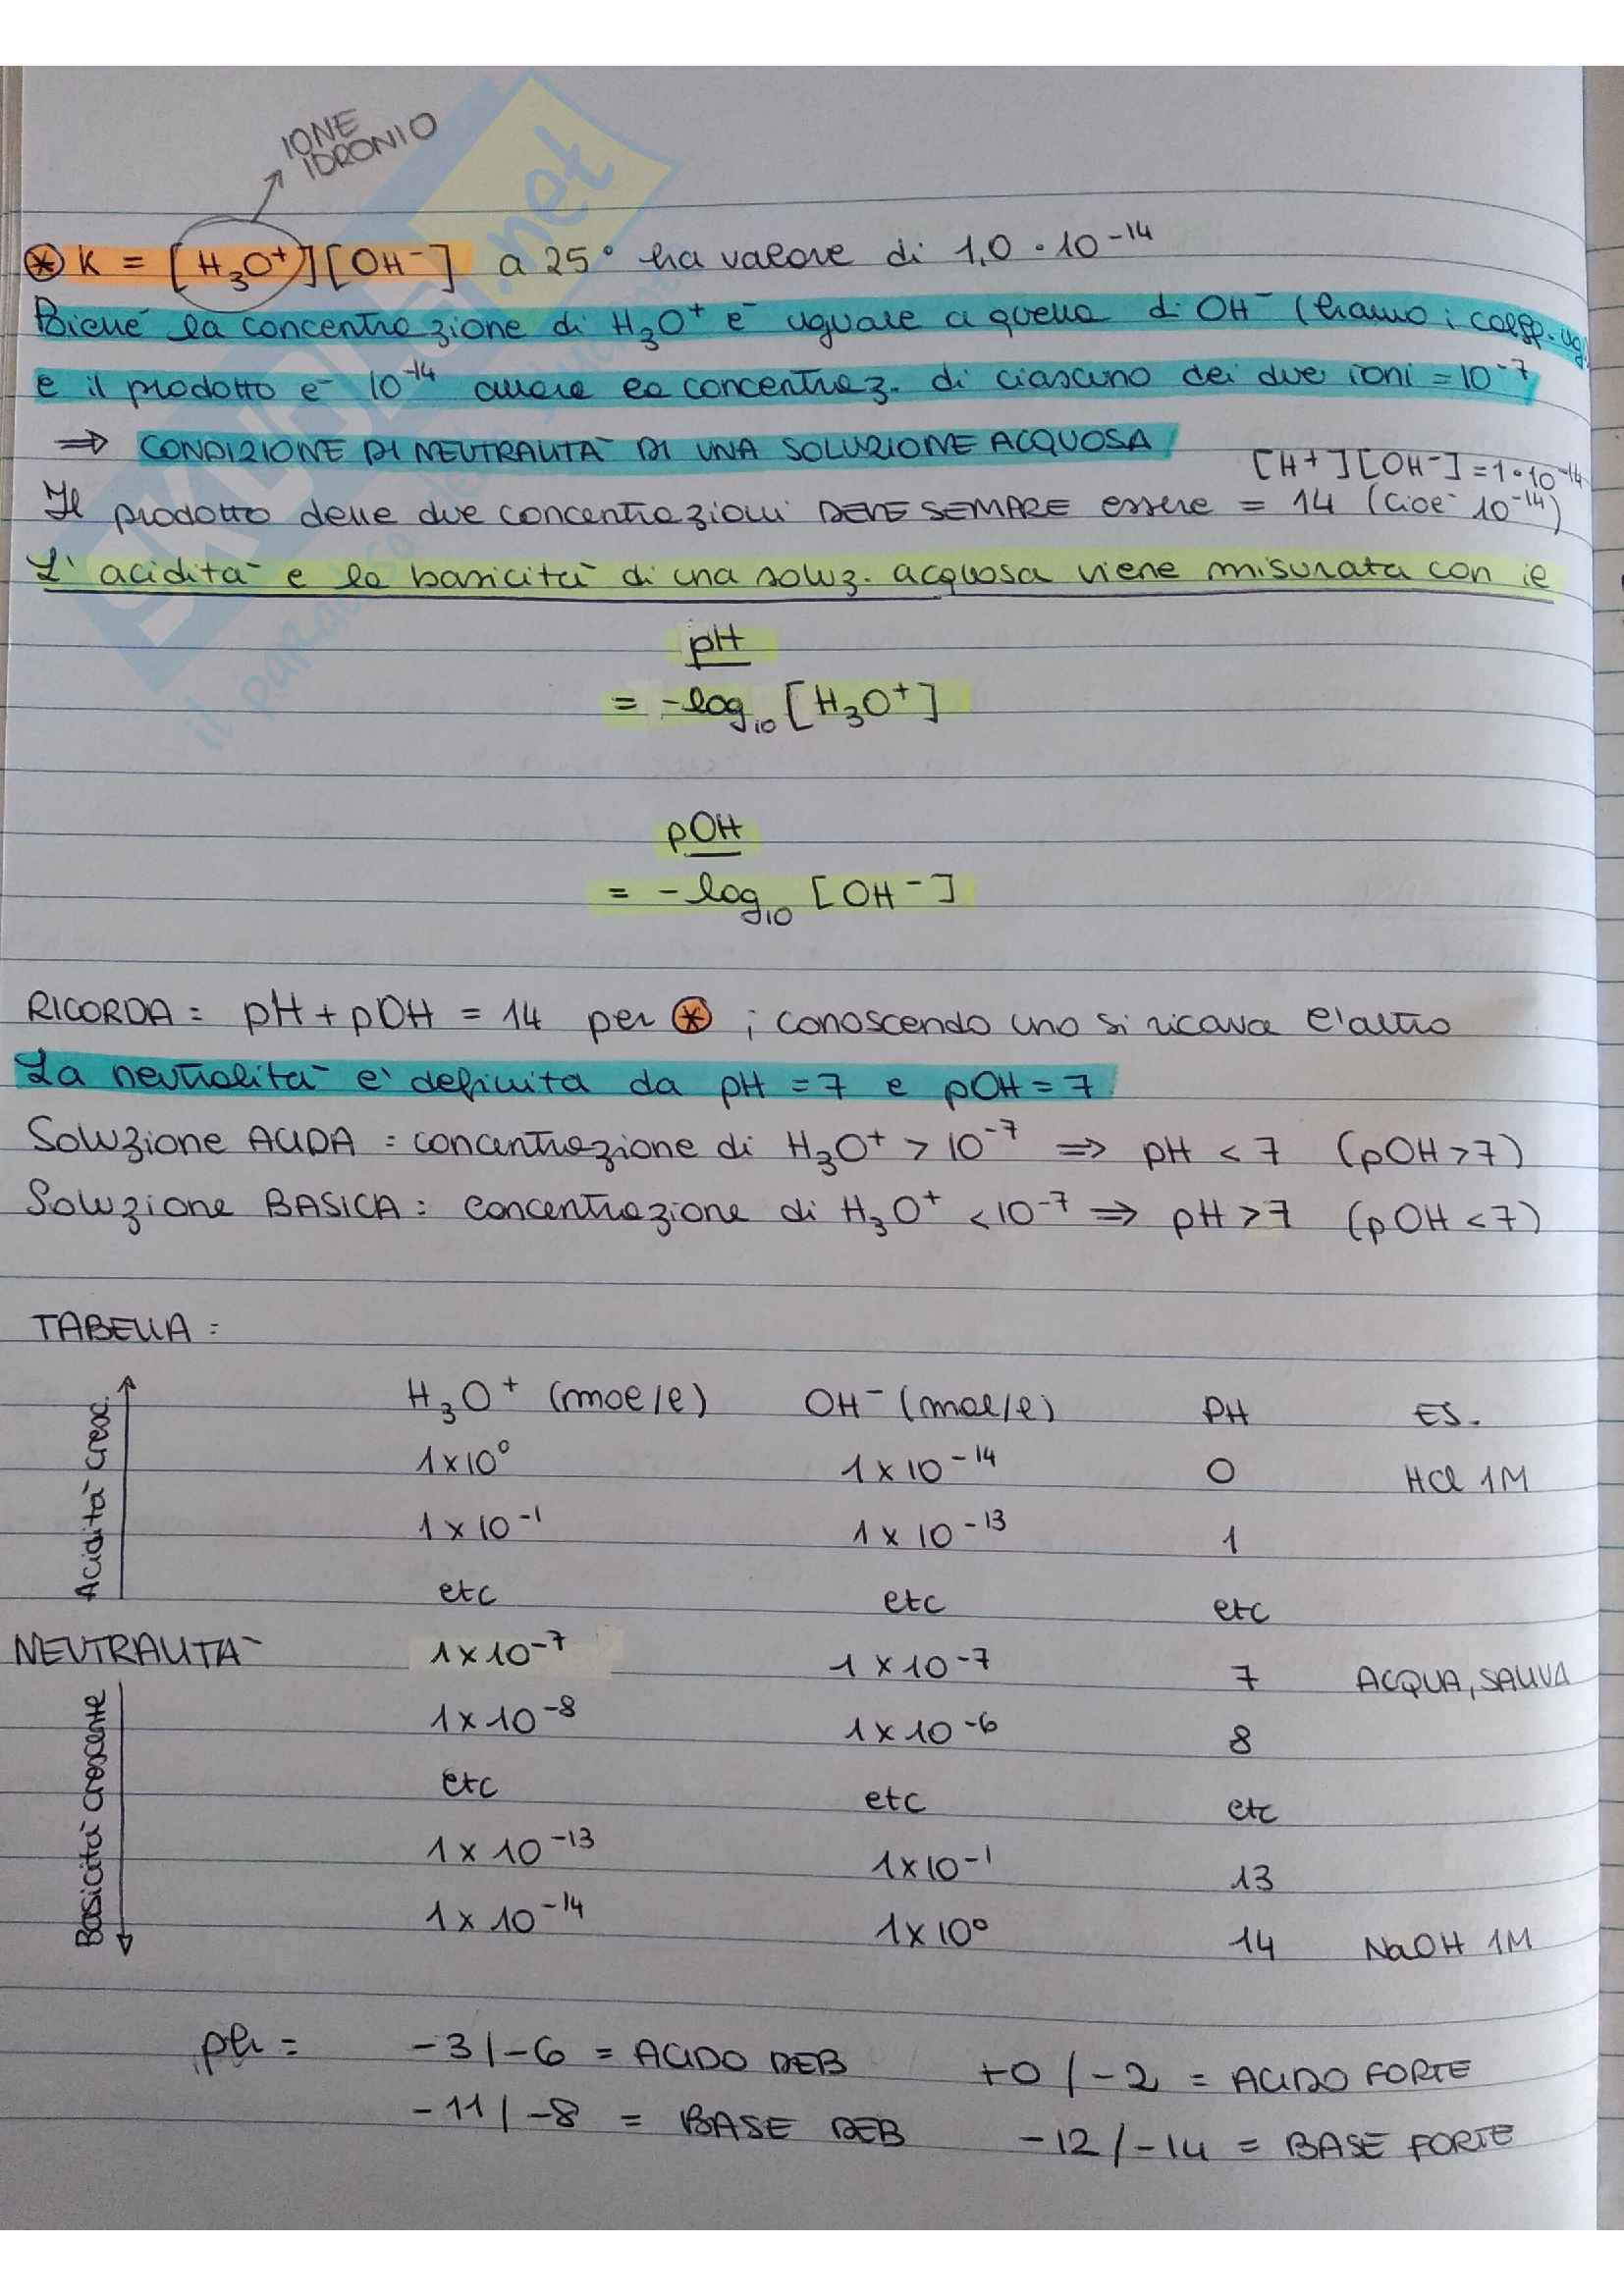 IONE
IDRONIO
⊛ K = [H₃O⁺][OH⁻] a 25° ha valore di 1,0 · 10⁻¹⁴
Poiché la concentrazione di H₃O⁺ è uguale a quella di OH⁻ (hanno i coeff. ug.
e il prodotto è 10⁻¹⁴ allora la concentraz. di ciascuno dei due ioni = 10⁻⁷
⇒ CONDIZIONE DI NEUTRALITÀ DI UNA SOLUZIONE ACQUOSA
[H⁺][OH⁻] = 1·10⁻¹⁴
Il prodotto delle due concentrazioni DEVE SEMPRE essere = 14 (cioè 10⁻¹⁴)
L'acidità e la basicità di una soluz. acquosa viene misurata con il
pH
= -log₁₀ [H₃O⁺]
pOH
= -log₁₀ [OH⁻]
RICORDA: pH + pOH = 14 per ⊛ ; conoscendo uno si ricava l'altro
La neutralità è definita da pH = 7 e pOH = 7
Soluzione ACIDA : concentrazione di H₃O⁺ > 10⁻⁷ ⇒ pH < 7 (pOH > 7)
Soluzione BASICA : concentrazione di H₃O⁺ < 10⁻⁷ ⇒ pH > 7 (pOH < 7)
TABELLA :
H₃O⁺ (mol/l) OH⁻ (mol/l) PH ES.
Acidità cresc.
1x10⁰ 1 x 10⁻¹⁴ 0 HCl 1M
1 x 10⁻¹ 1 x 10⁻¹³ 1
etc etc etc
NEUTRALITÀ 1x10⁻⁷ 1 x 10⁻⁷ 7 ACQUA, SALIVA
Basicità crescente
1x10⁻⁸ 1x10⁻⁶ 8
etc etc etc
1 x 10⁻¹³ 1x10⁻¹ 13
1 x 10⁻¹⁴ 1x10⁰ 14 NaOH 1M
ph = -3/-6 = ACIDO DEB +0/-2 = ACIDO FORTE
-11/-8 = BASE DEB -12/-14 = BASE FORTE